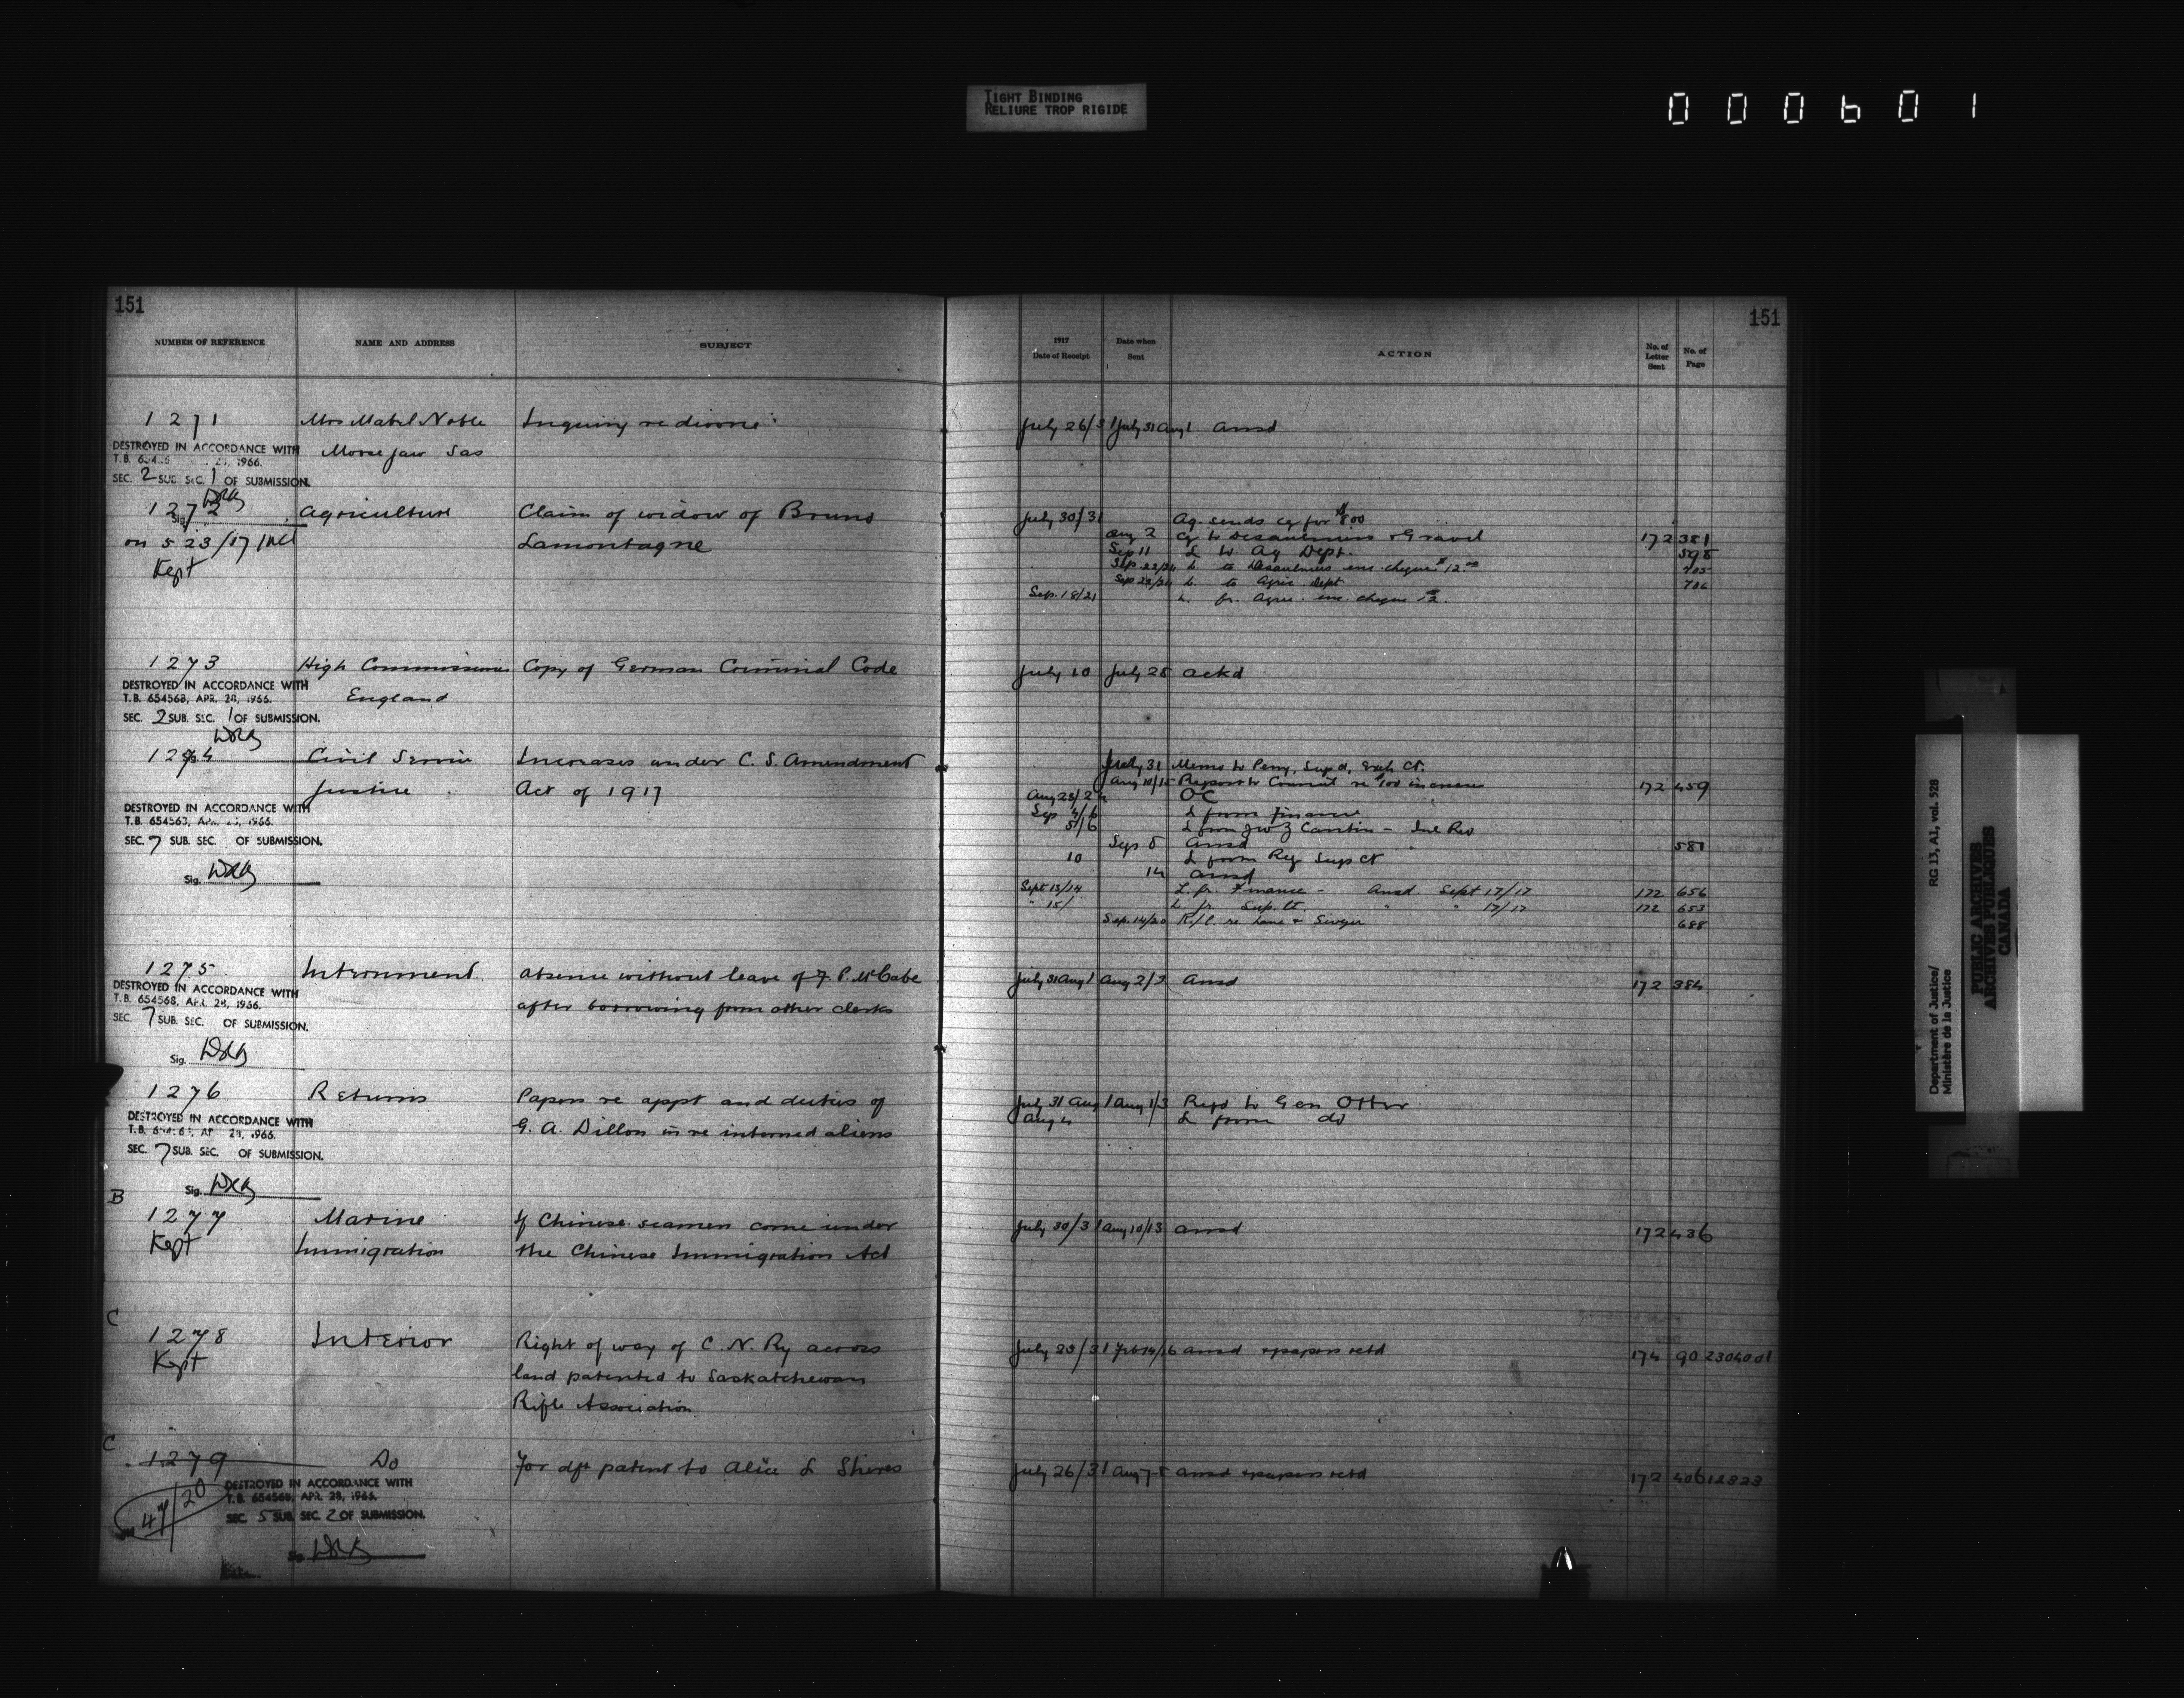 TIGHT BINDING
RELIURE TROP RIGIDE
000601
151
151
NUMBER OF REFERENCE NAME AND ADDRESS SUBJECT 1917 Date of Receipt Date when Sent ACTION No. of Letter Sent No. of Page
1271 Mrs Mabel Noble Inquiry re divorce July 26/31 July 31 Aug 1 ansd
DESTROYED IN ACCORDANCE WITH
Moose Jaw Sas
SEC. 2 SUB. SEC. 1 OF SUBMISSION.
1272 Agriculture Claim of widow of Bruno July 30/31 Ag. sends cq for $800
on 523/17 Incl Lamontagne Aug 2 Cq to Desaulniers & Gravel 172 381
Kept Sep 11 L to Ag Dept. 598
Sep. 22/24 L. to Desaulniers enc. cheque $12.00 705
Sep 22/24 L. to Agric Dept 706
Sep. 18/21 L. fr. Agric. enc. cheque $12.
1273 High Commissioner Copy of German Criminal Code July 10 July 28 ackd
DESTROYED IN ACCORDANCE WITH
T.B. 654568, APR. 28, 1966. England
SEC. 2 SUB. SEC. 1 OF SUBMISSION.
1274 Civil Service Increases under C. S. Amendment July 31 Memo to Perry, Sup ct, Exch Ct.
Justice Act of 1917 Aug 10/15 Report to Council re $100 increases 172 459
DESTROYED IN ACCORDANCE WITH Aug 23/24 OC
Sep 4/6 L from Finance
SEC. 7 SUB. SEC. OF SUBMISSION. 5/6 L from Inl Rev
Sep 8 ansd 581
10 L from Reg Sup ct
Sig. 14 ansd
Sept 13/14 L. fr. Finance - Ansd Sept 17/17 172 656
" 15/ L fr Sup. Ct. " " 17/17 172 653
Sep. 14/20 R/C. re Lane & 688
1275 Internment Absence without leave of F. P. McCabe July 31 Aug 1 Aug 2/3 Ansd 172 384
DESTROYED IN ACCORDANCE WITH
T.B. 654568, APR. 28, 1966. after borrowing from other clerks
SEC. 7 SUB. SEC. OF SUBMISSION.
Sig.
1276 Returns Papers re appt and duties of July 31 Aug 1 Aug 1/3 Repd to Gen Otter
DESTROYED IN ACCORDANCE WITH Aug 4 L from do
G. A. Dillon in re interned aliens
SEC. 7 SUB. SEC. OF SUBMISSION.
Sig.
B
1277 Marine If Chinese seamen come under July 30/31 Aug 10/13 ansd 172 436
Kept Immigration the Chinese Immigration Act
C
1278 Interior Right of way of C. N. Ry across July 23/31 Feb 14/16 ansd & papers retd 174 90 2304001
Kept land patented to Saskatchewan
Rifle Association
C
1279 Do For dft patent to Alice L Shires July 26/31 Aug 7-8 ansd & papers retd 172 406 12823
47/20 DESTROYED IN ACCORDANCE WITH
T.B. 654568, APR. 28, 1966.
SEC. 5 SUB. SEC. 2 OF SUBMISSION.
Sig.
Department of Justice/
Ministère de la Justice
RG 13, A1, vol. 528
PUBLIC ARCHIVES
ARCHIVES PUBLIQUES
CANADA